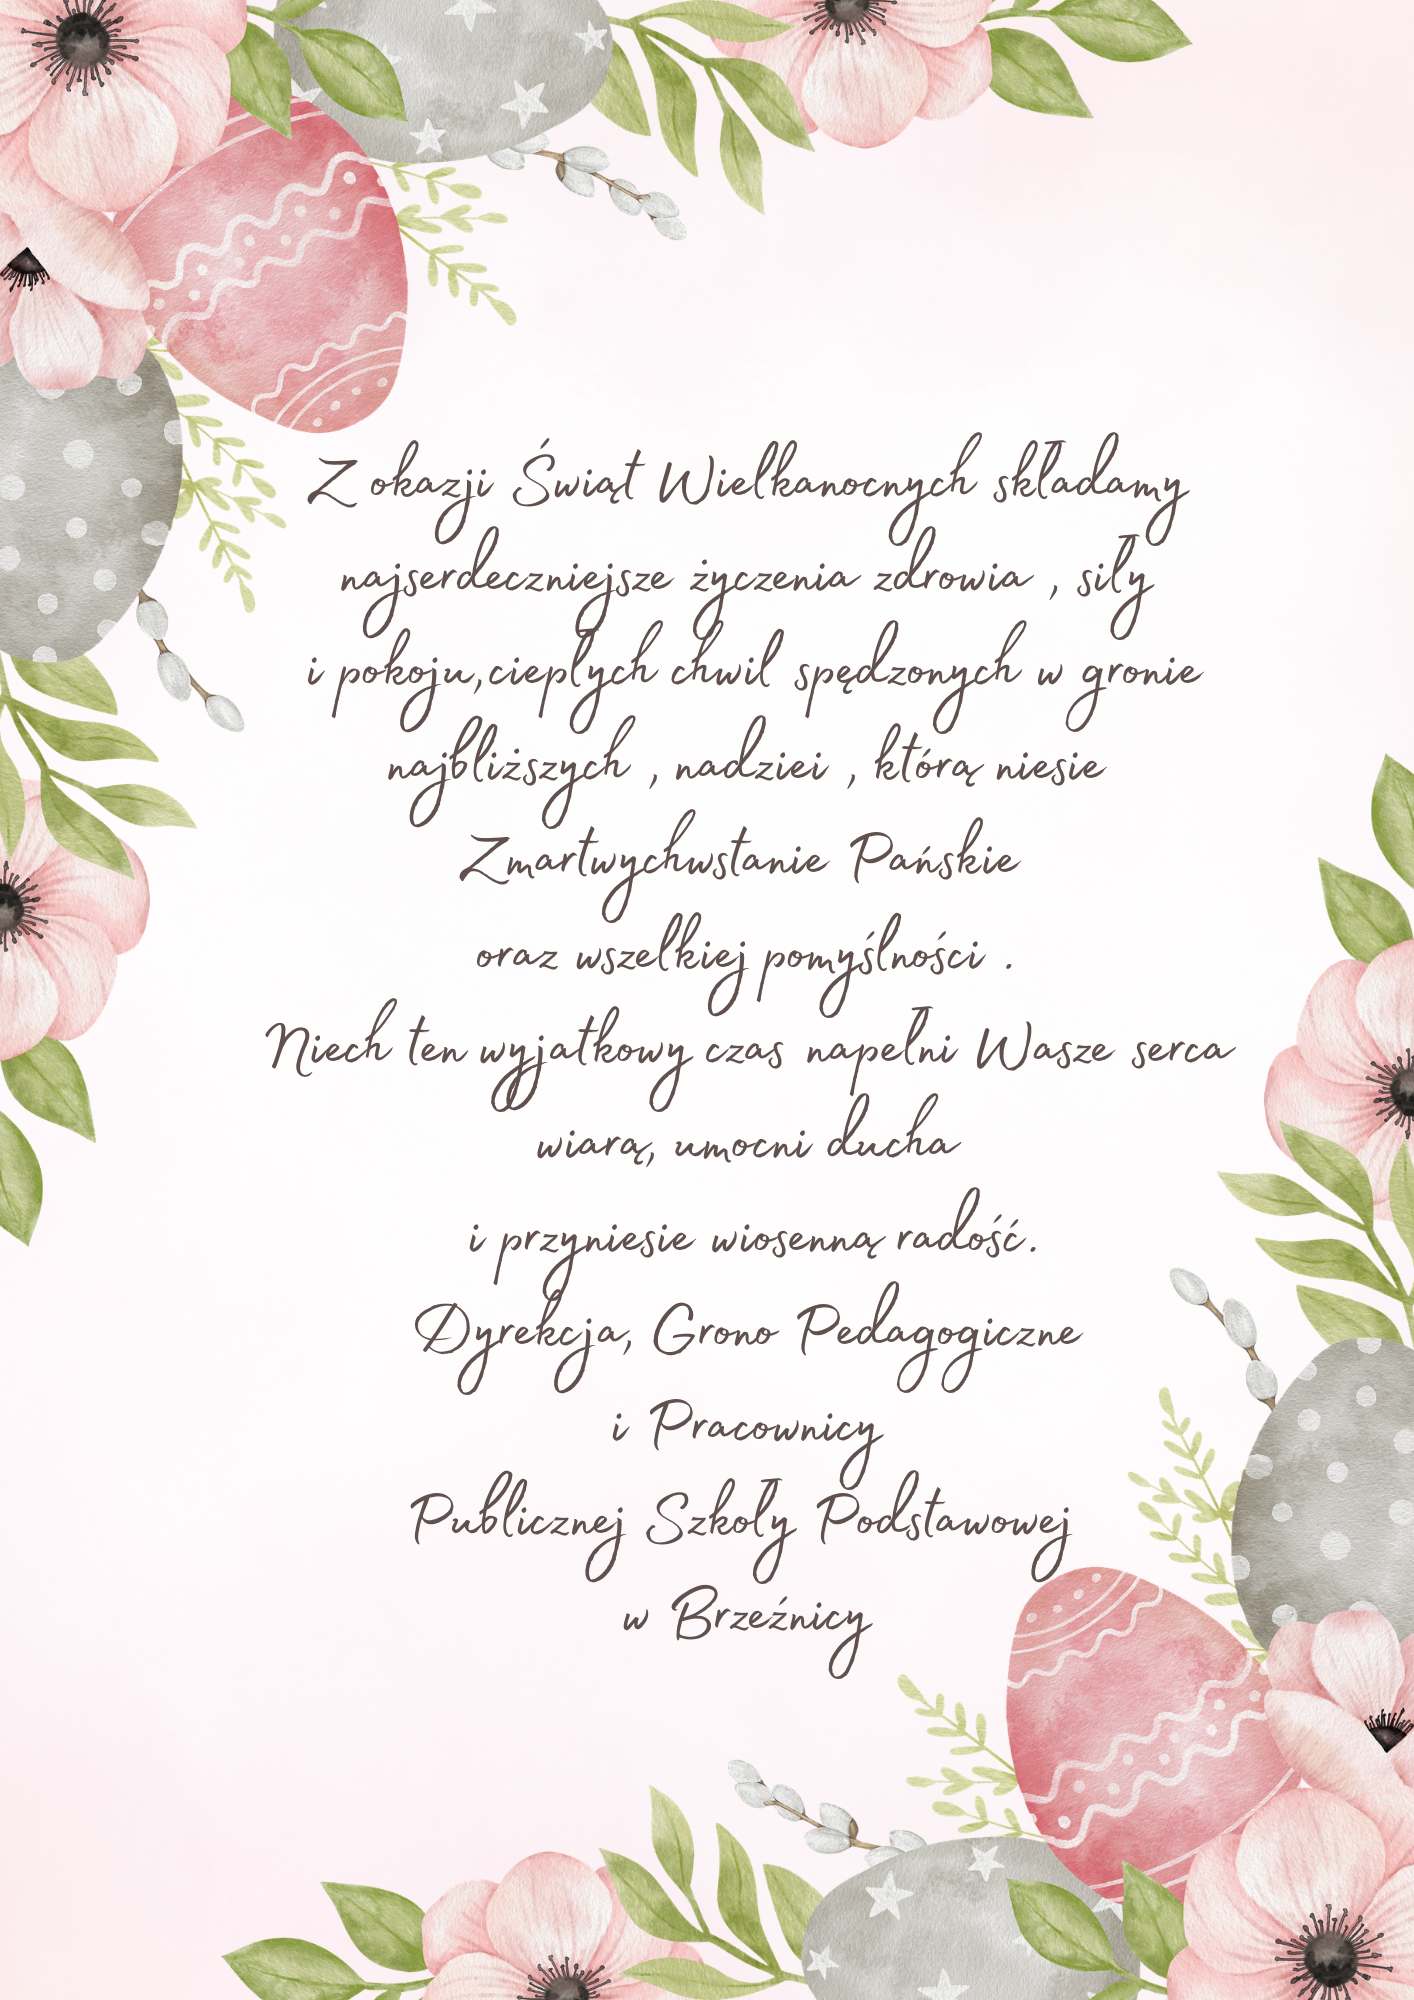 Z okazji Świąt Wielkanocnych składamy
najserdeczniejsze życzenia zdrowia , siły
i pokoju,ciepłych chwil spędzonych w gronie
najbliższych , nadziei , którą niesie
Zmartwychwstanie Pańskie
oraz wszelkiej pomyślności .
Niech ten wyjatkowy czas napełni Wasze serca
wiarą, umocni ducha
i przyniesie wiosenną radość.
Dyrekcja, Grono Pedagogiczne
i Pracownicy
Publicznej Szkoły Podstawowej
w Brzeźnicy